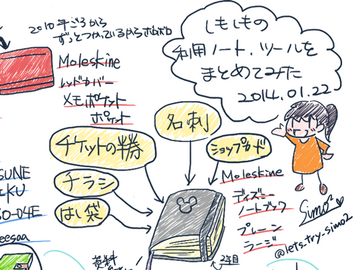 2010年ごろから
ずっとつかっているからボロボロ
Moleskine
レッドカバー
メモポケット
ポケット
しもしもの
利用ノート、ツールを
まとめてみた
2014.01.22
名刺
チケットの半券
ショップカード
チラシ
はし袋
Moleskine
ディズニー
ノートブック
プレーン
ラージ
Simo2
@lets-try-simo2
SUNE
KU
SO-04E
eesaa
無料
2年目